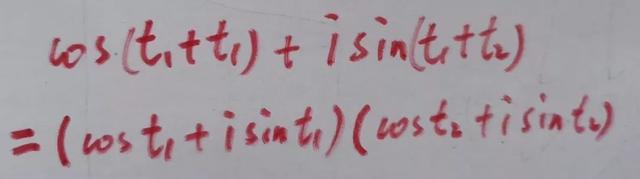 cos(t₁+t₁) + i sin(t₁+t₂)
= (cos t₁ + i sin t₁)(cos t₂ + i sin t₂)